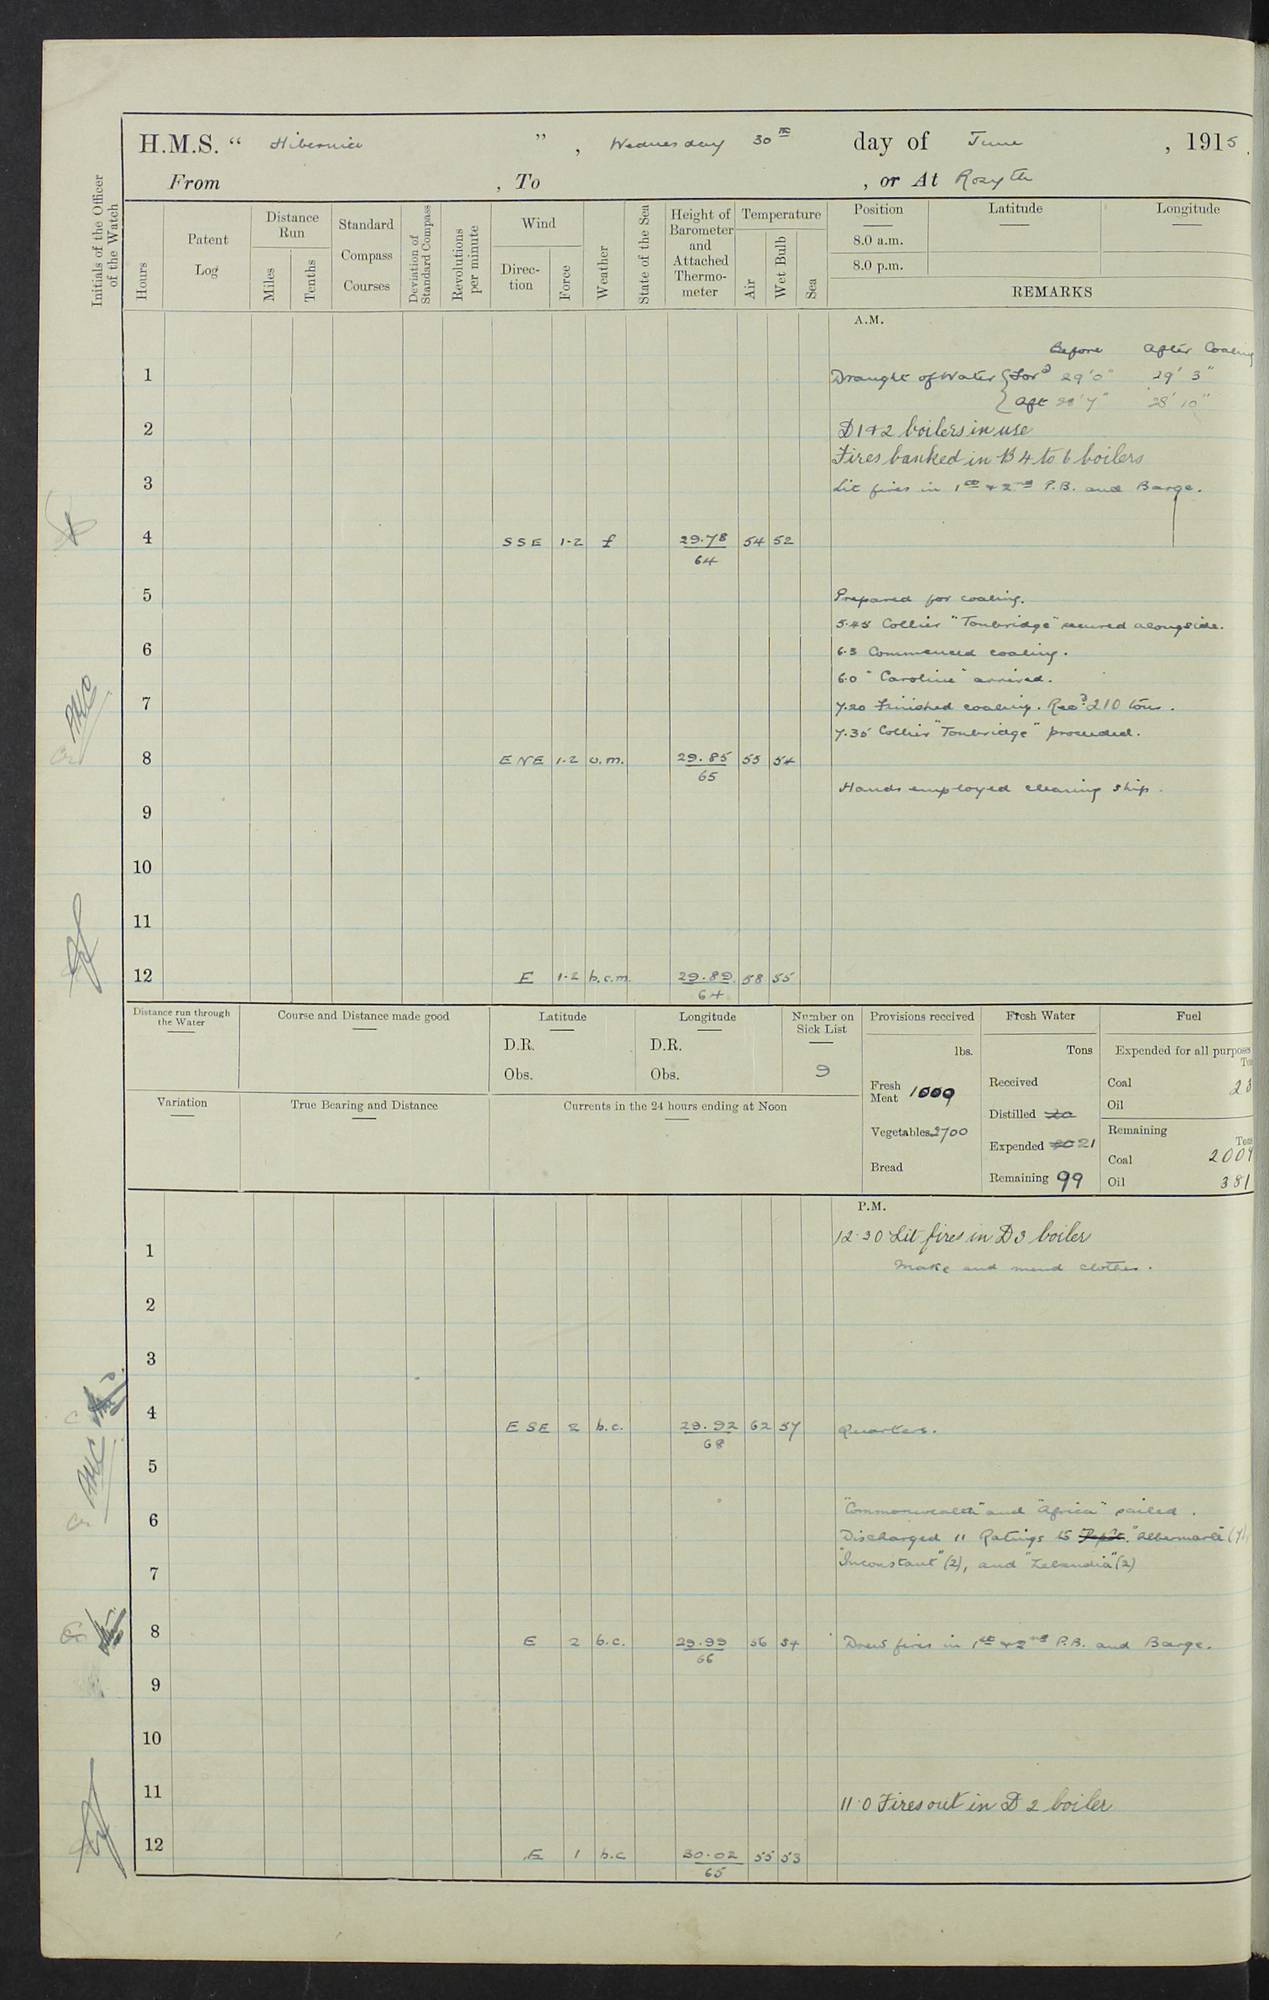 H.M.S. “ Hibernia ” , Wednesday 30th day of June , 1915.
From , To , or At Rosyth
Initials of the Officer of the Watch
Hours
Patent Log
Distance Run
Miles
Tenths
Standard Compass Courses
Deviation of Standard Compass
Revolutions per minute
Wind
Direction
Force
Weather
State of the Sea
Height of Barometer and Attached Thermometer
Temperature
Air
Wet Bulb
Sea
Position Latitude Longitude
8.0 a.m.
8.0 p.m.
REMARKS
A.M.
Before After Coaling
1 Draught of Water { For'd 29' 0" 29' 3"
Aft 28' 7" 28' 10"
2 D 1 & 2 boilers in use
Fires banked in B 4 to 6 boilers
3 Lit fires in 1st & 2nd P.B. and Barge.
4 SSE 1-2 f 29.78 54 52
64
5 Prepared for coaling.
5.45 Collier "Tonbridge" secured alongside.
6 6.3 Commenced coaling.
6.0 "Caroline" arrived.
7 7.20 Finished coaling. Recd 210 tons.
7.35 Collier "Tonbridge" proceeded.
8 ENE 1-2 o.m. 29.85 55 54
65
Hands employed cleaning ship.
9
10
11
12 E 1-2 b.c.m. 29.89 58 55
64
Distance run through the Water
Course and Distance made good
Latitude
D.R.
Obs.
Longitude
D.R.
Obs.
Number on Sick List
9
Provisions received
lbs.
Fresh Meat 1009
Vegetables 2700
Bread
Fresh Water
Tons
Received
Distilled 20
Expended 20 21
Remaining 99
Fuel
Expended for all purposes
Coal 28
Oil
Remaining
Tons
Coal 2009
Oil 381
Variation
True Bearing and Distance
Currents in the 24 hours ending at Noon
P.M.
12.30 Lit fires in D 3 boiler
1
Make and mend clothes.
2
3
4 ESE 2 b.c. 29.92 62 57 Quarters.
68
5
"Commonwealth" and "Africa" sailed.
6
Discharged 11 Ratings to "Albemarle" (7),
"Inconstant" (2), and "Zelandia" (2)
7
8 E 2 b.c. 29.99 56 54 Drew fires in 1st & 2nd P.B. and Barge.
66
9
10
11 11.0 Fires out in D 2 boiler
12 E 1 b.c 30.02 55 53
65